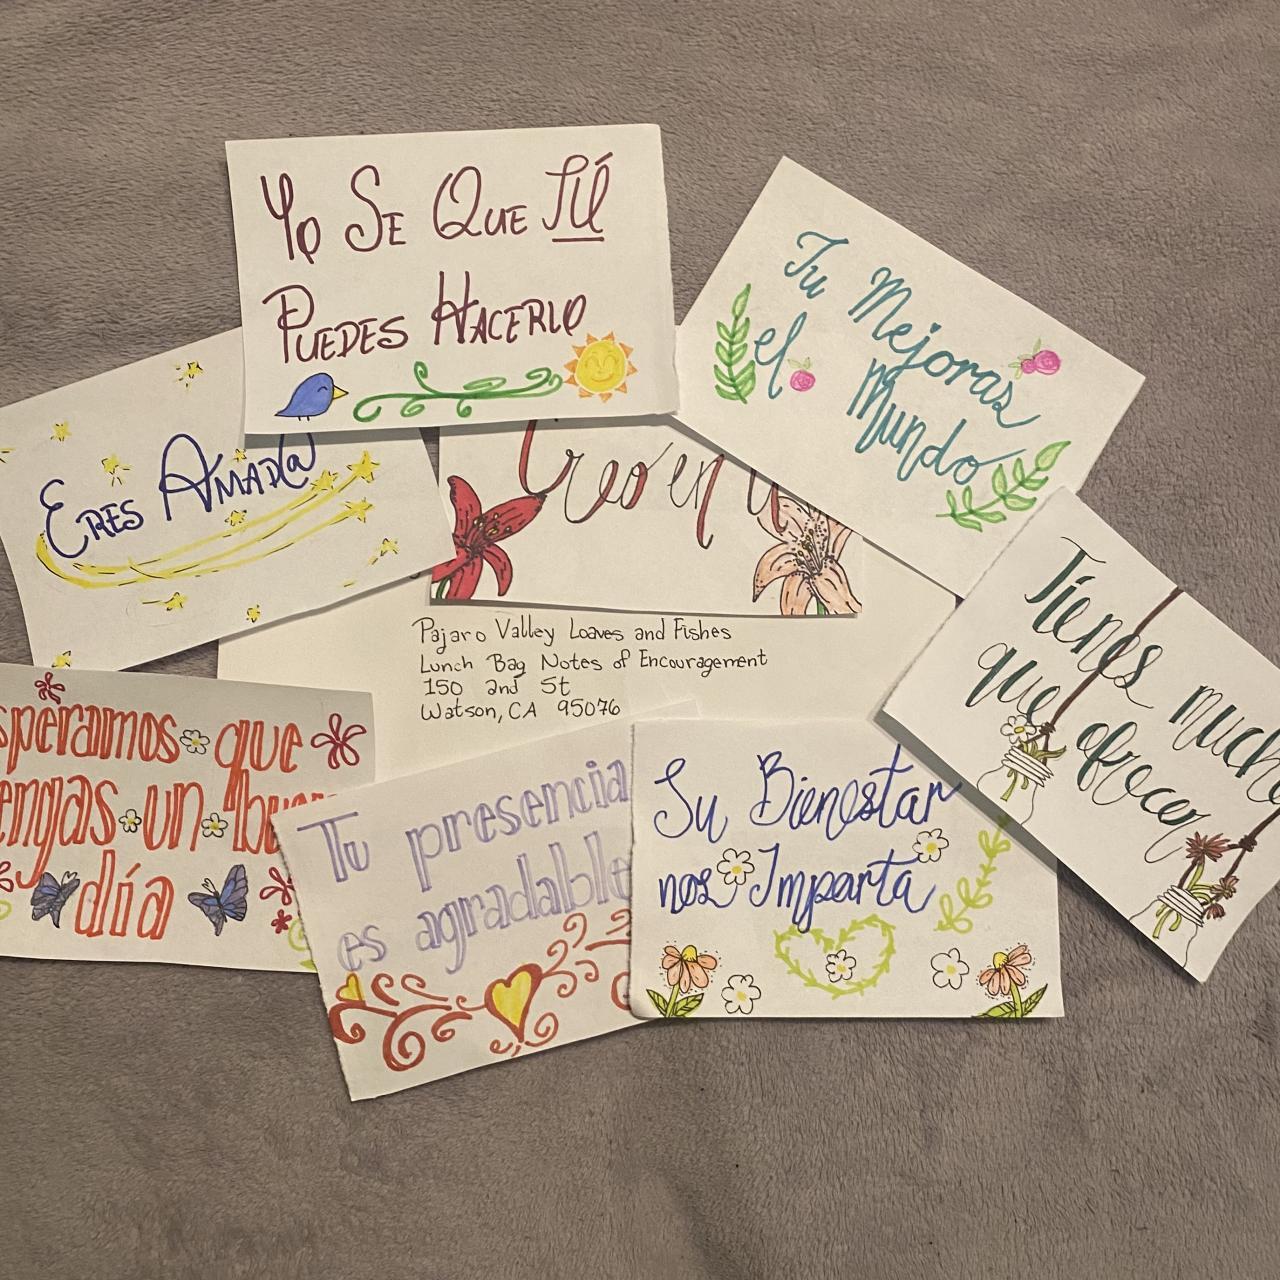 Yo Se Que Tú
Puedes Hacerlo
Tu Mejoras
el Mundo
Eres Amad@
Creo en
Tienes
que ofrecer
Pajaro Valley Loaves and Fishes
Lunch Bag Notes of Encouragement
150 2nd St
Watson, CA 95076
que
un
día
Tu presencia
es agradable
Su Bienestar
nos Imparta